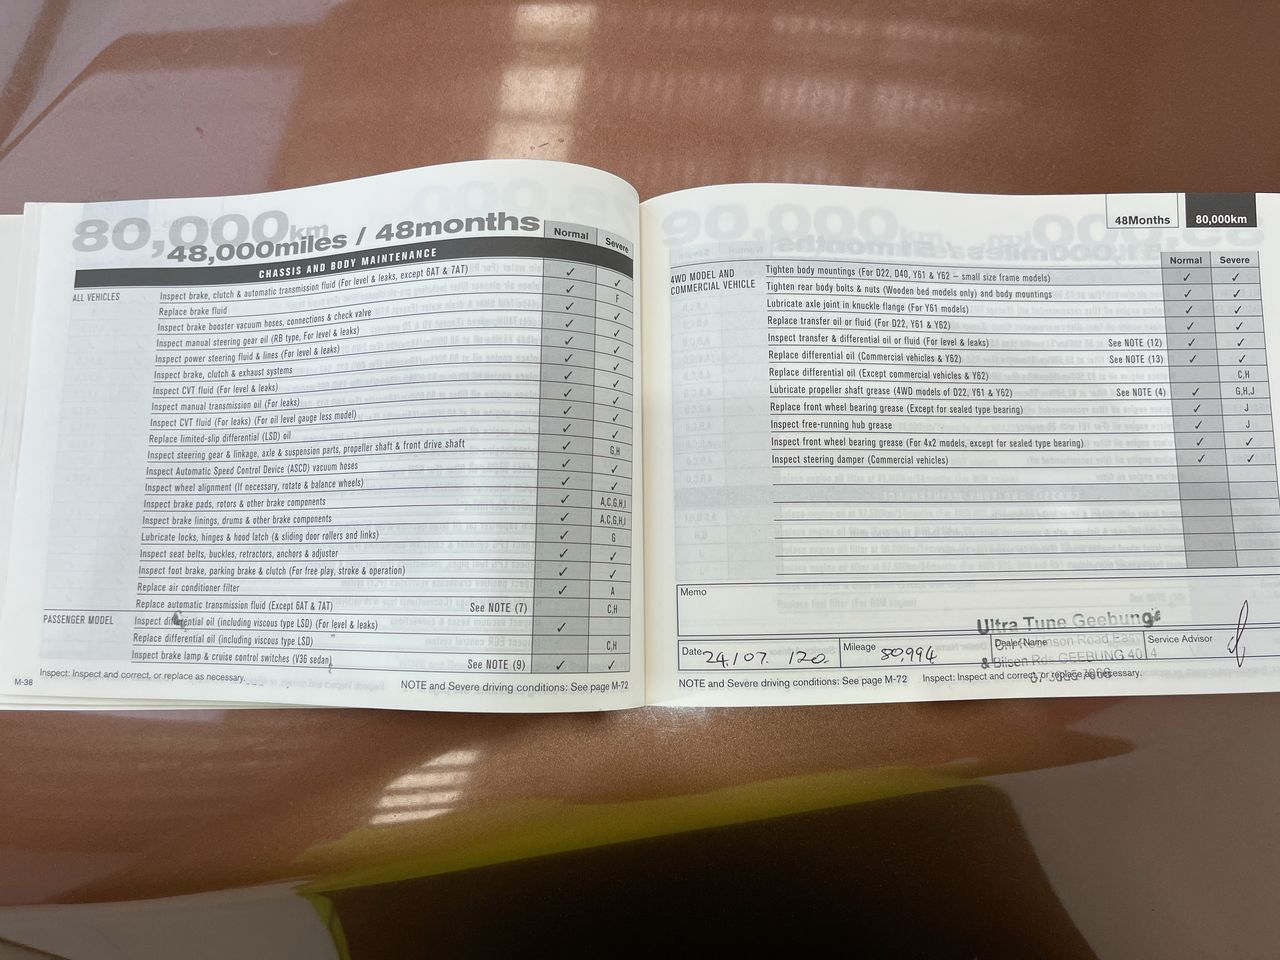 80,000km
48,000miles / 48months
Normal Severe
CHASSIS AND BODY MAINTENANCE
ALL VEHICLES
Inspect brake, clutch & automatic transmission fluid (For level & leaks, except 6AT & 7AT) ✓ ✓
Replace brake fluid ✓ F
Inspect brake booster vacuum hoses, connections & check valve ✓ ✓
Inspect manual steering gear oil (RB type, For level & leaks) ✓ ✓
Inspect power steering fluid & lines (For level & leaks) ✓ ✓
Inspect brake, clutch & exhaust systems ✓ ✓
Inspect CVT fluid (For level & leaks) ✓ ✓
Inspect manual transmission oil (For leaks) ✓ ✓
Inspect CVT fluid (For leaks) (For oil level gauge less model) ✓ ✓
Replace limited-slip differential (LSD) oil ✓ ✓
Inspect steering gear & linkage, axle & suspension parts, propeller shaft & front drive shaft ✓ G,H
Inspect Automatic Speed Control Device (ASCD) vacuum hoses ✓ ✓
Inspect wheel alignment (If necessary, rotate & balance wheels) ✓ ✓
Inspect brake pads, rotors & other brake components ✓ A,C,G,H,I
Inspect brake linings, drums & other brake components ✓ A,C,G,H,I
Lubricate locks, hinges & hood latch (& sliding door rollers and links) ✓ G
Inspect seat belts, buckles, retractors, anchors & adjuster ✓ ✓
Inspect foot brake, parking brake & clutch (For free play, stroke & operation) ✓ ✓
Replace air conditioner filter ✓ A
Replace automatic transmission fluid (Except 6AT & 7AT) See NOTE (7) C,H
PASSENGER MODEL
Inspect differential oil (including viscous type LSD) (For level & leaks) ✓
Replace differential oil (including viscous type LSD) C,H
Inspect brake lamp & cruise control switches (V36 sedan) See NOTE (9) ✓ ✓
Inspect: Inspect and correct, or replace as necessary.
M-38
NOTE and Severe driving conditions: See page M-72
48Months 80,000km
Normal Severe
4WD MODEL AND
COMMERCIAL VEHICLE
Tighten body mountings (For D22, D40, Y61 & Y62 – small size frame models) ✓ ✓
Tighten rear body bolts & nuts (Wooden bed models only) and body mountings ✓ ✓
Lubricate axle joint in knuckle flange (For Y61 models) ✓ ✓
Replace transfer oil or fluid (For D22, Y61 & Y62) ✓ ✓
Inspect transfer & differential oil or fluid (For level & leaks) See NOTE (12) ✓ ✓
Replace differential oil (Commercial vehicles & Y62) See NOTE (13) ✓ ✓
Replace differential oil (Except commercial vehicles & Y62) C,H
Lubricate propeller shaft grease (4WD models of D22, Y61 & Y62) See NOTE (4) ✓ G,H,J
Replace front wheel bearing grease (Except for sealed type bearing) ✓ J
Inspect free-running hub grease ✓ J
Inspect front wheel bearing grease (For 4x2 models, except for sealed type bearing) ✓ ✓
Inspect steering damper (Commercial vehicles) ✓ ✓
Memo
Ultra Tune Geebung
Date 24/07/20 Mileage 80,994 Dealer Name Service Advisor
& Bilsen Rds GEEBUNG 4014
NOTE and Severe driving conditions: See page M-72 Inspect: Inspect and correct, or replace as necessary.